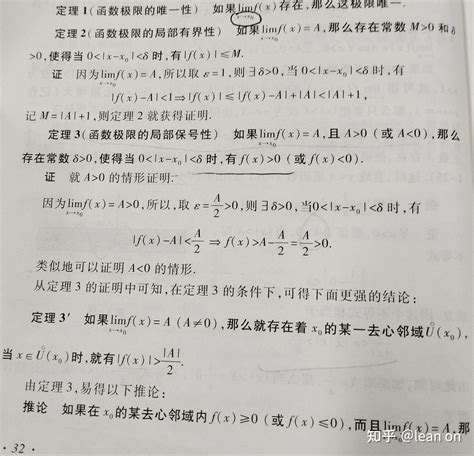 定理1(函数极限的唯一性) 如果lim f(x)存在,那么这极限唯一.
x→x₀
定理2(函数极限的局部有界性) 如果lim f(x)=A,那么存在常数M>0和δ
x→x₀
>0,使得当0<|x-x₀|<δ时,有|f(x)|≤M.
证 因为lim f(x)=A,所以取ε=1,则∃δ>0,当0<|x-x₀|<δ时,有
x→x₀
|f(x)-A|<1⇒|f(x)|≤|f(x)-A|+|A|<|A|+1,
记M=|A|+1,则定理2就获得证明.
定理3(函数极限的局部保号性) 如果lim f(x)=A,且A>0(或A<0),那么
x→x₀
存在常数δ>0,使得当0<|x-x₀|<δ时,有f(x)>0(或f(x)<0).
证 就A>0的情形证明.
因为lim f(x)=A>0,所以,取ε=A/2>0,则∃δ>0,当0<|x-x₀|<δ时,有
x→x₀
|f(x)-A|<A/2⇒f(x)>A-A/2=A/2>0.
类似地可以证明A<0的情形.
从定理3的证明中可知,在定理3的条件下,可得下面更强的结论:
定理3′ 如果lim f(x)=A(A≠0),那么就存在着x₀的某一去心邻域Ů(x₀),
x→x₀
当x∈Ů(x₀)时,就有|f(x)|>|A|/2.
由定理3,易得以下推论:
推论 如果在x₀的某去心邻域内f(x)≥0(或f(x)≤0),而且lim f(x)=A,那
x→x₀
·32·
知乎 @lean on